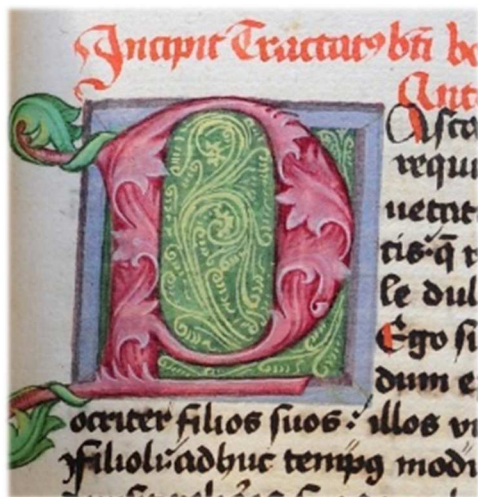 Incipit Tractatꝰ bti be
Ant
P Asco
requi
uetat
tis·q̄ r
le dul
Ego si
dum e
ocriter filios suos: illos vi
filioli: adhuc tempꝰ modi